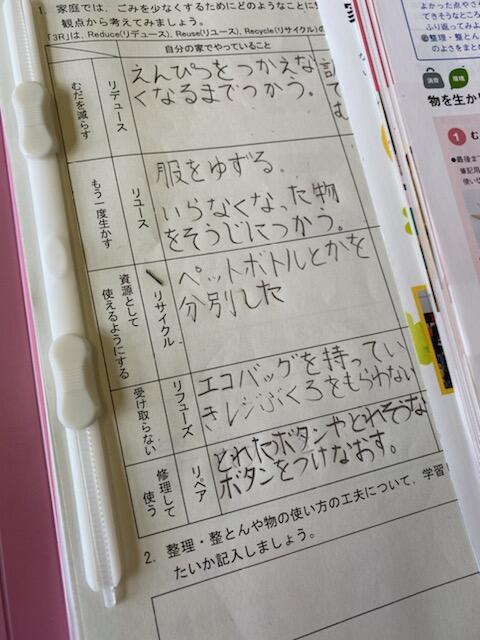 1. 家庭では、ごみを少なくするためにどのようなことに
観点から考えてみましょう。
「3R」は、Reduce(リデュース), Reuse(リユース), Recycle(リサイクル)の
自分の家でやっていること
むだを減らす
リデュース
えんぴつをつかえな
くなるまでつかう。
もう一度生かす
リユース
服をゆずる。
いらなくなった物
をそうじにつかう。
資源として
使えるようにする
リサイクル
ペットボトルとかを
分別した
受け取らない
リフューズ
エコバッグを持ってい
きレジぶくろをもらわない
修理して
使う
リペア
とれたボタンやとれそうな
ボタンをつけなおす。
2. 整理・整とんや物の使い方の工夫について, 学習
たいか記入しましょう。
よかった点やさ
できそうなところ
ふり返ってみよ
整理・整とん
のよさをまとめ
消費
環境
物を生か
1
む
●最後ま
筆記用
使いな